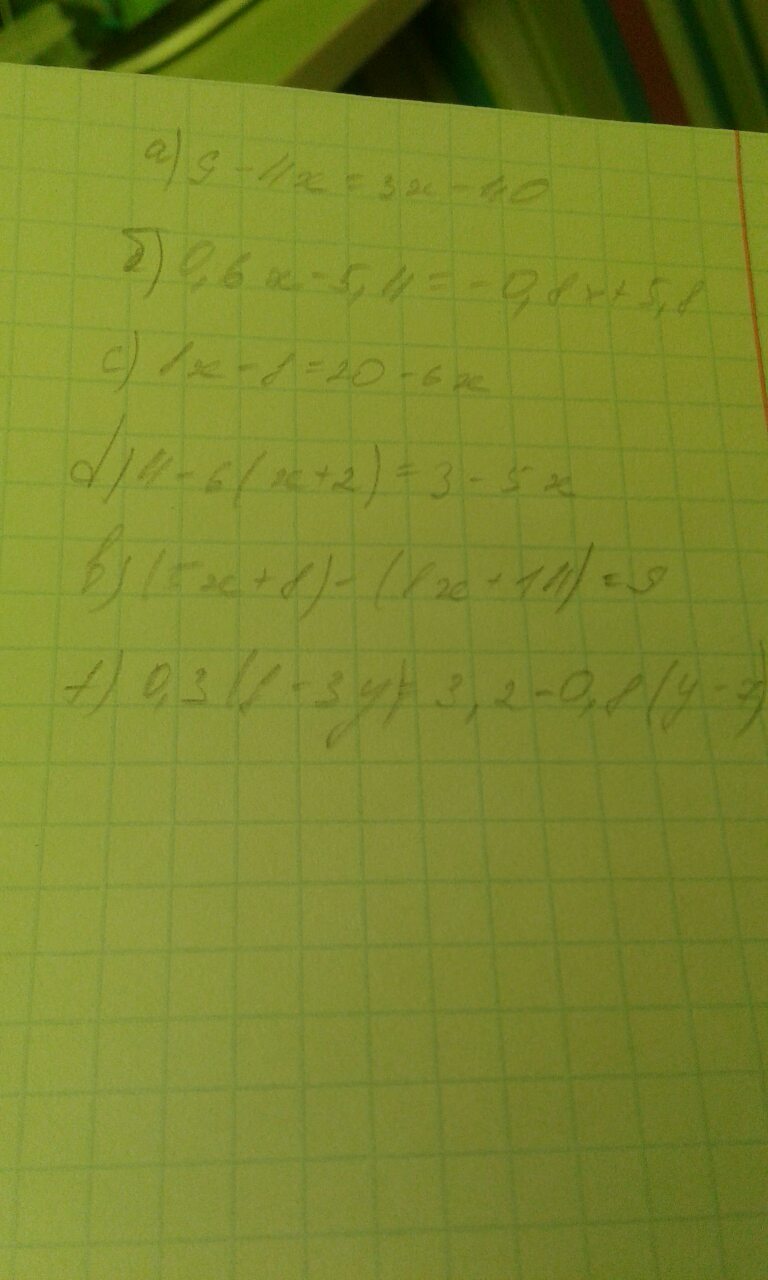 а) 9-4x=3x-40
б) 0,6x-5,4=-0,8x+5,8
c) 8x-8=20-6x
d) 4-6(x+2)=3-5x
в) (5x+8)-(8x+14)=9
f) 0,3(8-3y)=3,2-0,8(y-7)